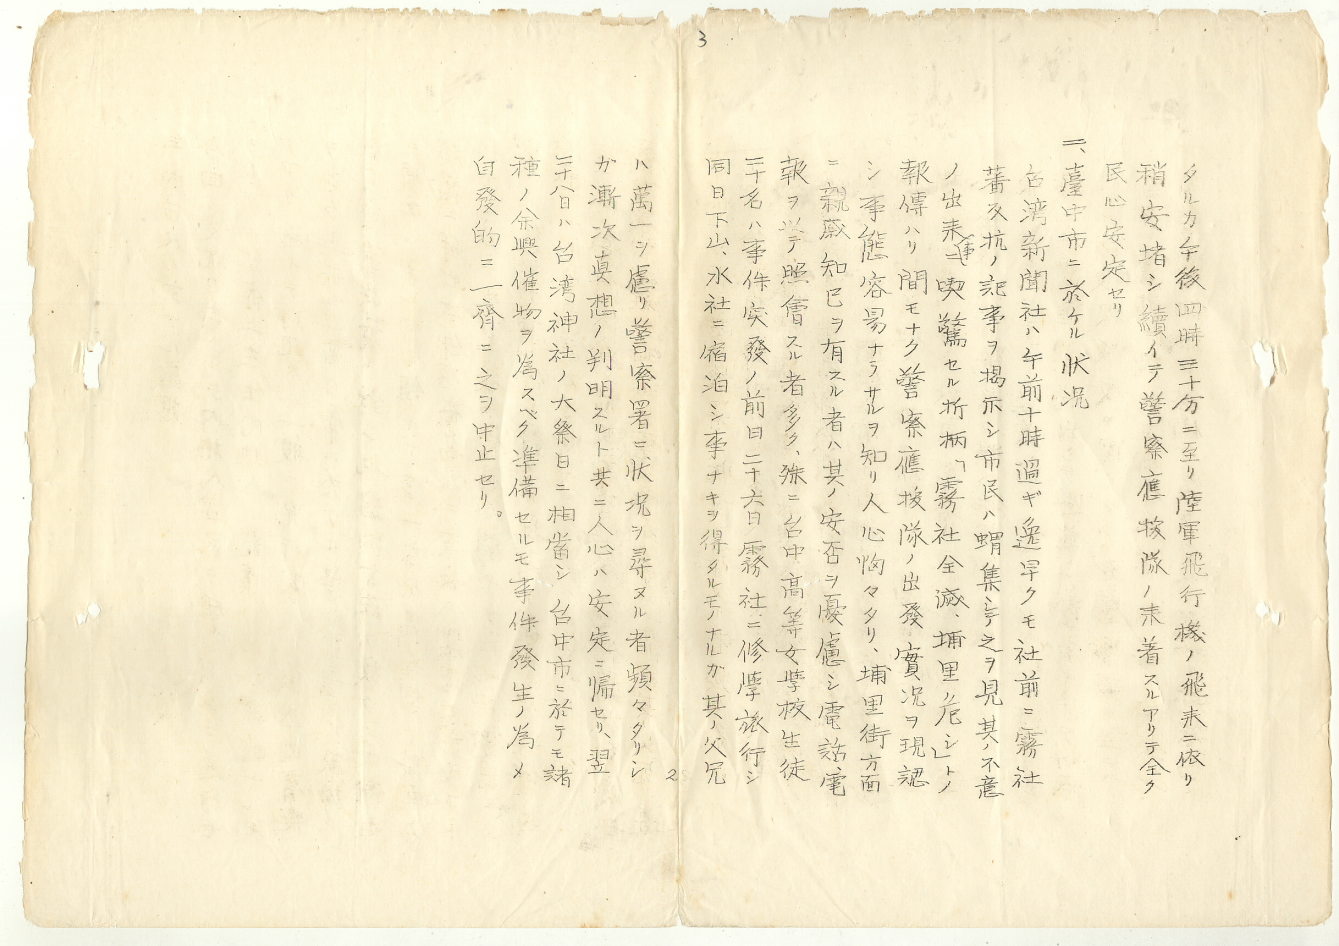 3
タルカ午後四時三十分ニ至リ陸軍飛行機ノ飛来ニ依リ
稍安堵シ續イテ警察應援隊ノ来着スルアリテ全ク
民心安定セリ
二、臺中市ニ於ケル状況
台湾新聞社ハ午前十時過ギ逸早クモ社前ニ霧社
蕃反抗ノ記事ヲ掲示シ市民ハ蝟集シテ之ヲ見其ノ不意
ノ出来事ニ喫驚セル折柄「霧社全滅、埔里危シ」トノ
報傳ハリ間モナク警察應援隊ノ出發實况ヲ現認
シ事態容易ナラサルヲ知リ人心恟々タリ、埔里街方面
ニ親戚知巳ヲ有スル者ハ其ノ安否ヲ憂慮シ電話、電
報ヲ以テ照會スル者多ク、殊ニ台中高等女學校生徒
三十名ハ事件突發ノ前日二十六日霧社ニ修學旅行シ
同日下山、水社ニ宿泊シ事ナキヲ得タルモノナルガ其ノ父兄
2
ハ萬一ヲ慮リ警察署ニ状況ヲ尋ヌル者頻々タリシ
ガ漸次真想ノ判明スルト共ニ人心ハ安定ニ帰セリ、翌
二十八日ハ台湾神社ノ大祭日ニ相當シ台中市ニ於テモ諸
種ノ余興催物ヲ為スベク準備セルモ事件發生ノ為メ
自發的ニ一齊ニ之ヲ中止セリ。